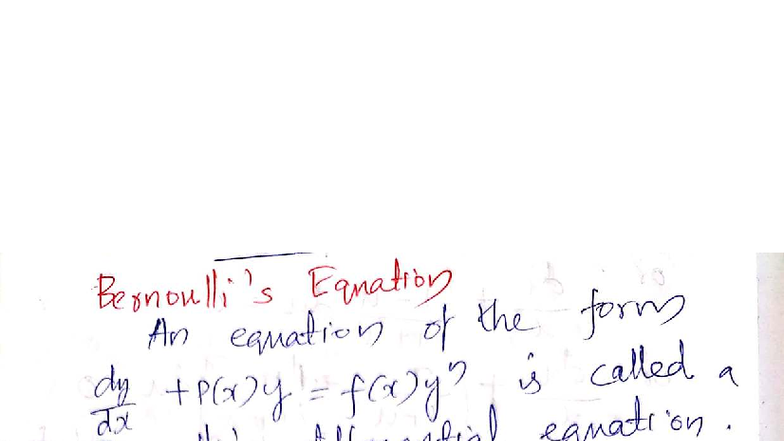 Bernoulli's Equation
An equation of the form
dy/dx + P(x)y = f(x)yⁿ is called a
equation.